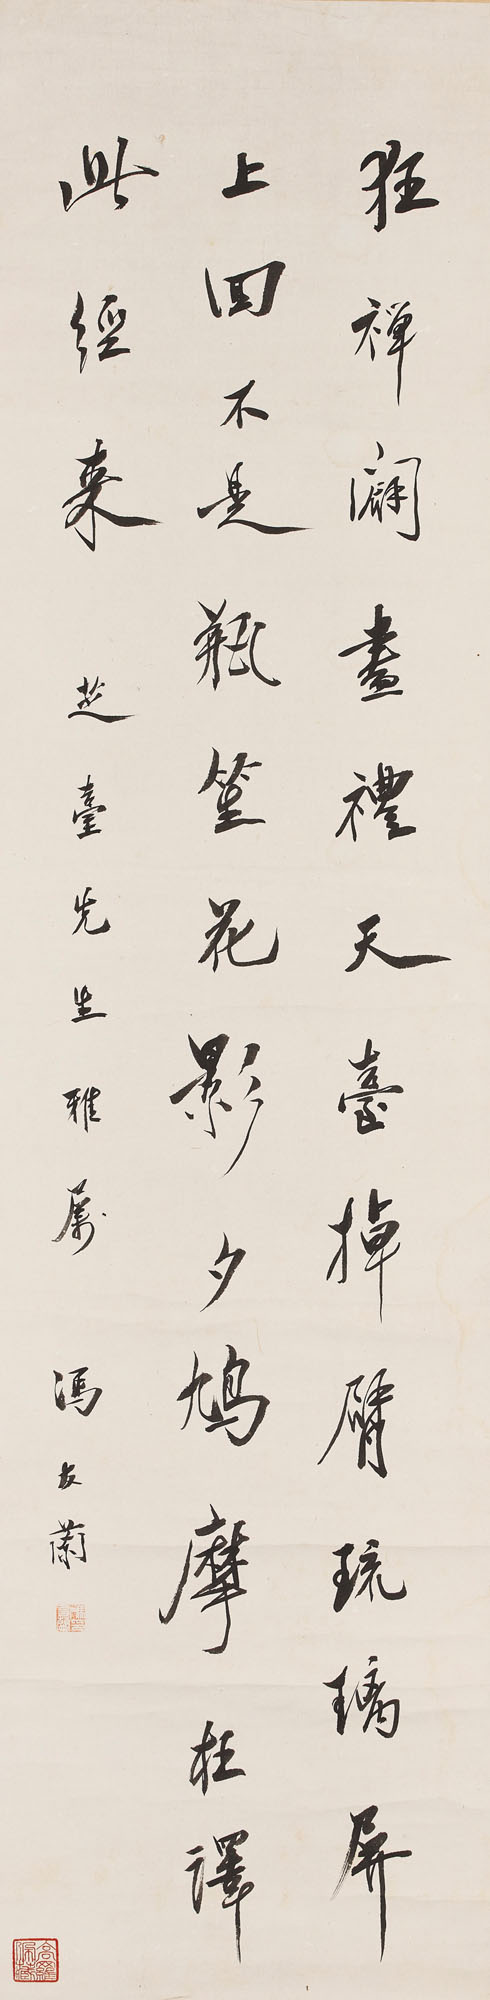 狂禪闢盡禮天臺掉臂琉璃屏
上回不是瓶笙花影夕鳩摩枉譯
此經来
芝臺先生雅屬 馮友蘭
高羅佩藏